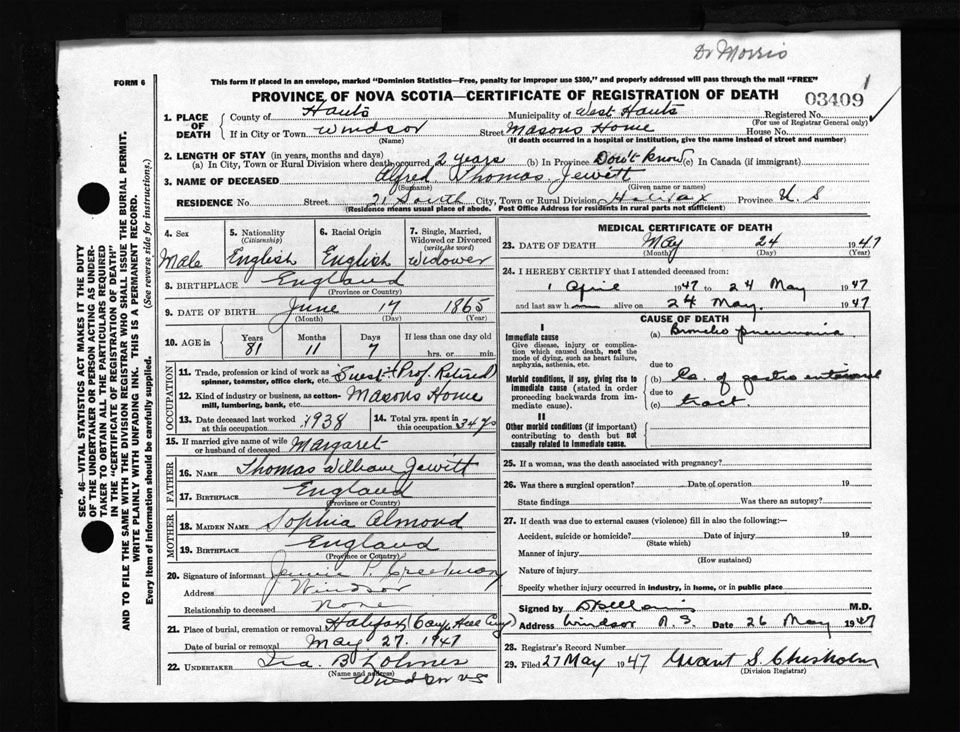 Dr Morris
FORM 6
This form if placed in an envelope, marked "Dominion Statistics—Free, penalty for improper use $300," and properly addressed will pass through the mail "FREE"
PROVINCE OF NOVA SCOTIA—CERTIFICATE OF REGISTRATION OF DEATH
03409
1. PLACE OF DEATH
County of Hants Municipality of West Hants Registered No.
(For use of Registrar General only)
If in City or Town Windsor Street Masons Home House No.
(Name) (If death occurred in a hospital or institution, give the name instead of street and number)
2. LENGTH OF STAY (in years, months and days)
(a) In City, Town or Rural Division where death occurred 2 years (b) In Province Don't know (c) In Canada (if immigrant)
3. NAME OF DECEASED Alfred Thomas Jewitt
(Surname) (Given name or names)
RESIDENCE No. Street 21 South City, Town or Rural Division Halifax Province
(Residence means usual place of abode. Post Office Address for residents in rural parts not sufficient)
4. Sex Male
5. Nationality (Citizenship) English
6. Racial Origin English
7. Single, Married, Widowed or Divorced (write the word) Widower
8. BIRTHPLACE England
(Province or Country)
9. DATE OF BIRTH June 17 1865
(Month) (Day) (Year)
10. AGE in Years 81 Months 11 Days 7 If less than one day old hrs. or min.
OCCUPATION
11. Trade, profession or kind of work as spinner, teamster, office clerk, etc. Retired
12. Kind of industry or business, as cotton-mill, lumbering, bank, etc. Masons Home
13. Date deceased last worked at this occupation 1938
14. Total yrs. spent in this occupation 34 yrs
15. If married give name of wife or husband of deceased Margaret
FATHER
16. NAME Thomas William Jewitt
17. BIRTHPLACE England
(Province or Country)
MOTHER
18. MAIDEN NAME Sophia Almond
19. BIRTHPLACE England
(Province or Country)
20. Signature of informant Jennie P. Creelman
Address Windsor
Relationship to deceased None
21. Place of burial, cremation or removal Halifax
Date of burial or removal May 27. 1947
22. UNDERTAKER Ira. B Lohnes
(Name and address) Windsor NS
MEDICAL CERTIFICATE OF DEATH
23. DATE OF DEATH May 24 1947
(Month) (Day) (Year)
24. I HEREBY CERTIFY that I attended deceased from:
1 April 1947 to 24 May 1947
and last saw h alive on 24 May. 1947
CAUSE OF DEATH
I
Immediate cause
Give disease, injury or complication which caused death, not the mode of dying, such as heart failure, asphyxia, asthenia, etc.
(a) Broncho pneumonia
due to
Morbid conditions, if any, giving rise to immediate cause (stated in order proceeding backwards from immediate cause).
(b) Ca. of gastro
due to
(c) tract.
II
Other morbid conditions (if important) contributing to death but not causally related to immediate cause.
25. If a woman, was the death associated with pregnancy?
26. Was there a surgical operation? Date of operation 19
State findings Was there an autopsy?
27. If death was due to external causes (violence) fill in also the following:—
Accident, suicide or homicide? Date of injury 19
(State which)
Manner of injury
(How sustained)
Nature of injury
Specify whether injury occurred in industry, in home, or in public place
Signed by M.D.
Address Windsor N.S. Date 26 May 1947
28. Registrar's Record Number
29. Filed 27 May 1947 Grant S. Chisholm
(Division Registrar)
SEC. 46—VITAL STATISTICS ACT MAKES IT THE DUTY
OF THE UNDERTAKER OR PERSON ACTING AS UNDER-
TAKER TO OBTAIN ALL THE PARTICULARS REQUIRED
IN THE "CERTIFICATE OF REGISTRATION OF DEATH"
AND TO FILE THE SAME WITH THE DIVISION REGISTRAR WHO SHALL ISSUE THE BURIAL PERMIT.
WRITE PLAINLY WITH UNFADING INK. THIS IS A PERMANENT RECORD.
Every item of information should be carefully supplied. (See reverse side for instructions.)